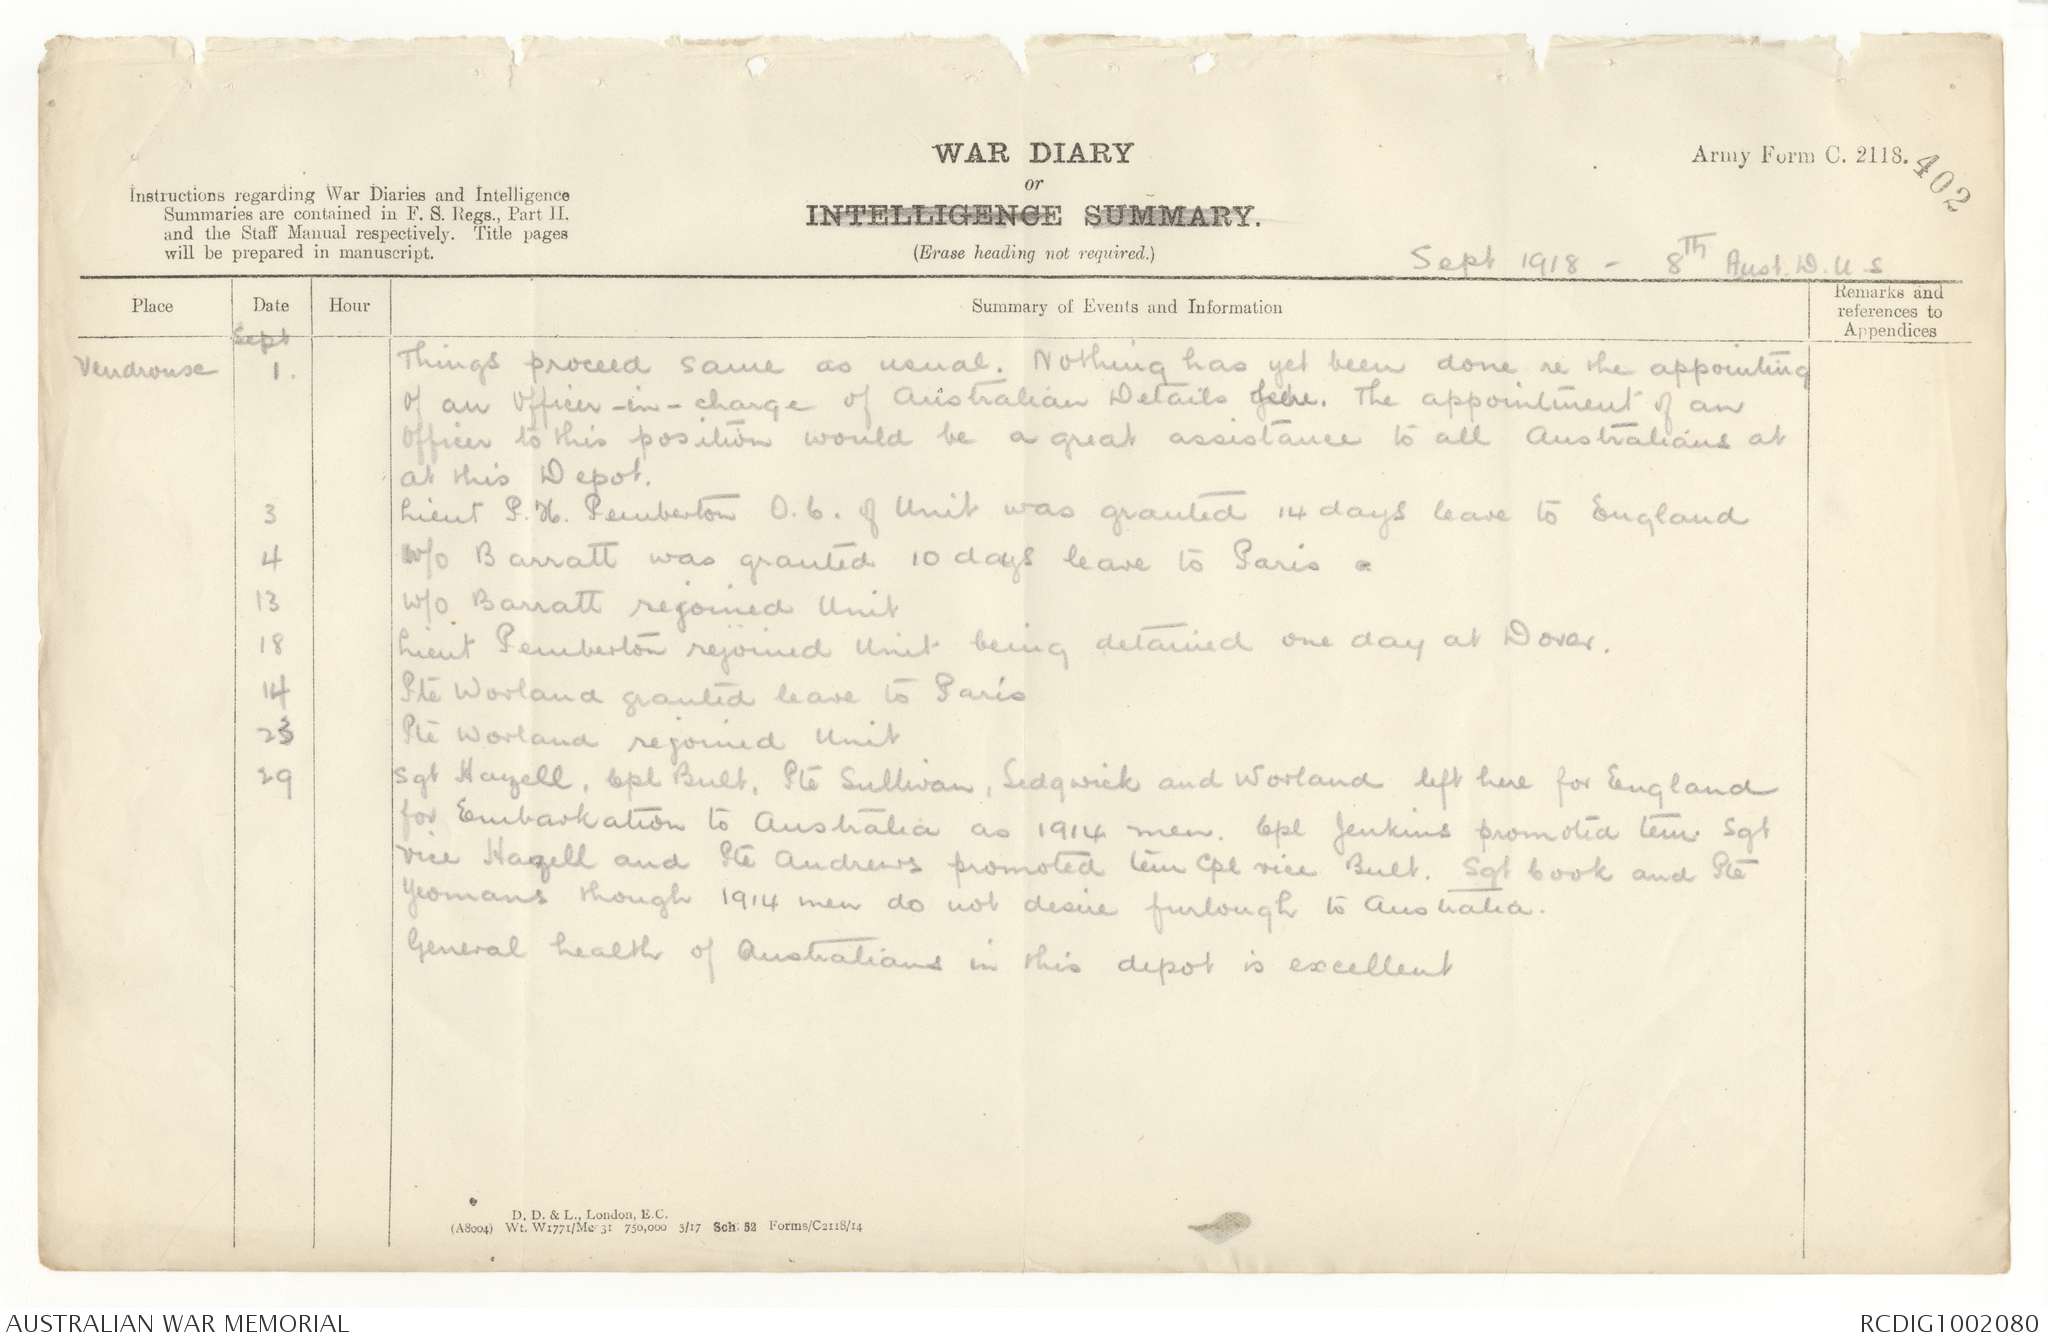 WAR DIARY
or
INTELLIGENCE SUMMARY.
(Erase heading not required.)
Army Form C. 2118.
402
Instructions regarding War Diaries and Intelligence
Summaries are contained in F. S. Regs., Part II.
and the Staff Manual respectively. Title pages
will be prepared in manuscript.
Sept 1918 - 8TH Aust. D. U S
Place Date Hour Summary of Events and Information Remarks and
references to
Appendices
Sept
Vendrouse 1. Things proceed same as usual. Nothing has yet been done re the appointing
of an Officer-in-charge of Australian Details here. The appointment of an
Officer to this position would be a great assistance to all Australians at
at this Depot.
3 Lieut P. H. Pemberton O.C. of Unit was granted 14 days leave to England
4 W/O Barratt was granted 10 days leave to Paris
13 W/O Barratt rejoined Unit
18 Lieut Pemberton rejoined Unit being detained one day at Dover.
14 Pte Worland granted leave to Paris
23 Pte Worland rejoined Unit
29 Sgt Hazell, Cpl Bult, Pte Sullivan, Sedgwick and Worland left here for England
for Embarkation to Australia as 1914 men. Cpl Jenkins promoted tem Sgt
vice Hazell and Pte Andrews promoted tem Cpl vice Bult. Sgt Cook and Pte
Yeomans though 1914 men do not desire furlough to Australia.
General health of Australians in this depot is excellent
D. D. & L., London, E.C.
(A8004) Wt. W1771/M2 31 750,000 5/17 Sch. 52 Forms/C2118/14
AUSTRALIAN WAR MEMORIAL RCDIG1002080